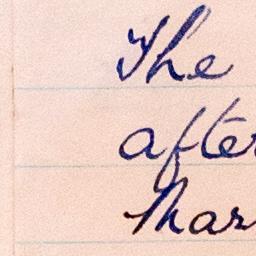 The
after
Mar